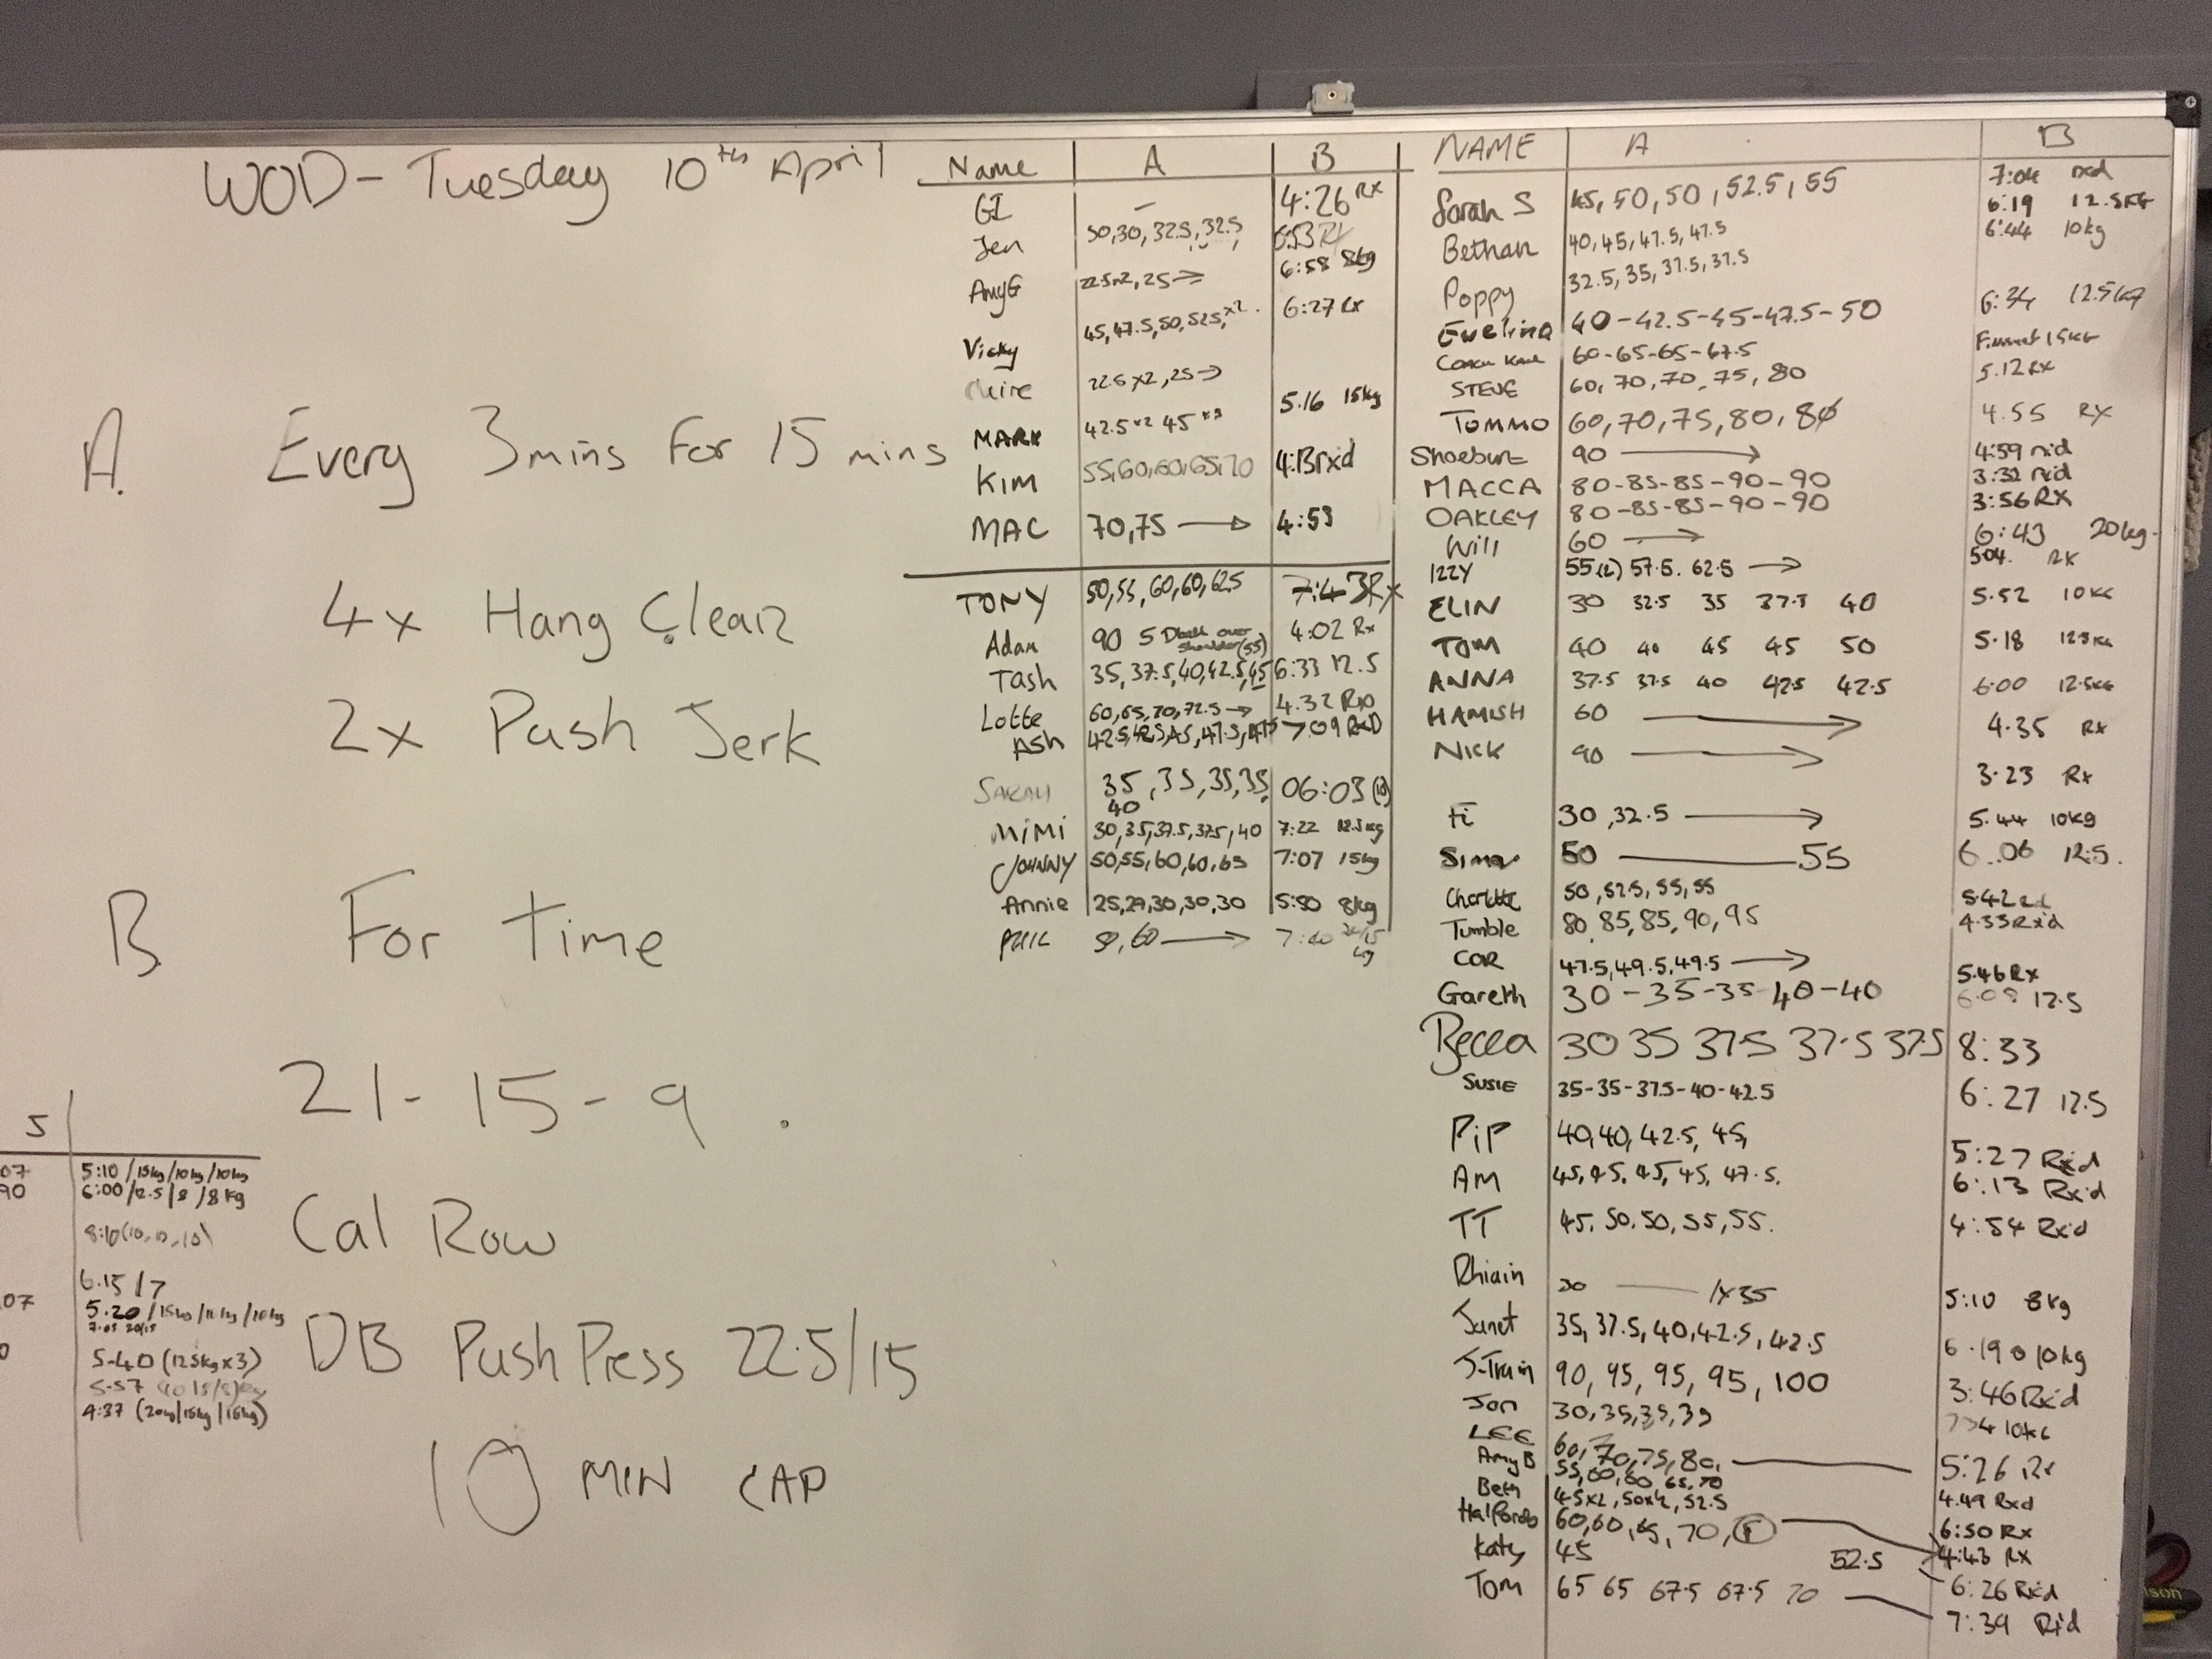 WOD - Tuesday 10ths April
A. Every 3mins For 15 mins
4x Hang Clean
2x Push Jerk
B. For Time
21-15-9.
Cal Row
DB PushPress 22.5/15
10 MIN CAP
5
07 5:10 /15kg/10kg/10kg
90 6:00/12.5/8/8kg
8:10(10,10,10)
6.15/7
07 5.20 /15kg/10kg/10kg
7.05 20/15
0 5-40 (12.5kg x3)
5.57
4:37 (20kg/15kg/15kg)
Name A B
GI - 4:26 Rx
Jen 30,30,32.5,32.5 Rx
AmyG 22.5x2,25→ 6:58 8kg
Vicky 45,47.5,50,52.5,x2. 6:27 Rx
Claire 22.5 x2,25→
MARK 42.5x2 45x3 5.16 15kg
KIM 55,60,60,65,70 4:13rxd
MAC 70,75 → 4:53
TONY 50,55,60,60,62.5 7:43Rx
Adam 90 5 Dball over shoulder(55) 4:02 Rx
Tash 35,37.5,40,42.5,45 6:33 12.5
Lotte 60,65,70,72.5→ 4.32 RxD
Ash 42.5,42.5,45,47.5,47.5 7.09 RxD
SARAH 35,35,35,35, 40 06:03 (10)
MiMi 30,35,37.5,37.5,40 7:22 12.5kg
JOHNNY 50,55,60,60,65 7:07 15kg
Annie 25,29,30,30,30 5:50 8kg
PHIL 50,60 → kg
NAME A B
Sarah S 45, 50, 50, 52.5, 55 7:04 rxd
Bethan 40,45,47.5,47.5 6:19 12.5KG
Poppy 32.5,35,37.5,37.5 6:44 10kg
Evelina 40-42.5-45-47.5-50 6:34 12.5kg
Coach 60-65-65-67.5 15KG
STEVE 60, 70, 70, 75, 80 5.12 Rx
TOMMO 60,70,75,80,80 4.55 RX
Shoebury 90 → 4:59 rxd
MACCA 80-85-85-90-90 3:32 rxd
OAKLEY 80-85-85-90-90 3:56 RX
Will 60 → 6:43 20kg-
IZZY 55(2) 57.5. 62.5 → 504. RX
ELIN 30 32.5 35 37.5 40 5.52 10KG
TOM 40 40 45 45 50 5.18 12.5KG
ANNA 37.5 37.5 40 42.5 42.5 6.00 12.5KG
HAMISH 60 → 4.35 Rx
NICK 90 → 3.23 Rx
Fi 30,32.5 → 5.44 10kg
Simon 50 — 55 6..06 12.5.
Charlotte 50,52.5,55,55 5.42
Tumble 80,85,85,90,95 4.33 Rxd
COR 47.5,49.5,49.5 → 5.46 Rx
Gareth 30-35-35-40-40 12.5
Becca 30 35 37.5 37.5 37.5 8:33
SUSIE 35-35-37.5-40-42.5 6:27 12.5
PiP 40,40,42.5,45, 5:27 Rxd
AM 45,45,45,45,47.5. 6:13 Rxd
TT 45,50,50,55,55. 4:54 Rxd
Rhiain 30 — 1x35 5:10 8kg
Janet 35,37.5,40,42.5,42.5 6.19 @ 10kg
J-Train 90, 95, 95, 95, 100 3:46 Rxd
Jon 30,35,35,35 734 10KG
LEE 60,70,75,80, — 5:26 Rx
Amy B 55,60,60,65,70 4.49 Rxd
Beth 45x2,50x2,52.5 6:50 Rx
Halfords 60,60,65,70,F 4:43 RX
Katy 45 52.5 6:26 Rxd
TOM 65 65 67.5 67.5 70 — 7:39 Rxd
son